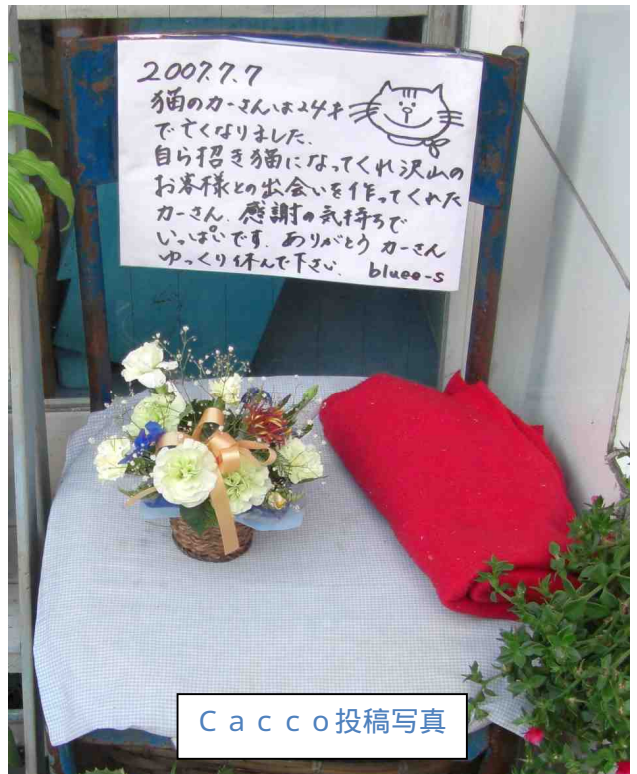 2007.7.7
猫のカーさんは24才
で亡くなりました.
自ら招き猫になってくれ沢山の
お客様との出会いを作ってくれた
カーさん. 感謝の気持ちで
いっぱいです. ありがとう カーさん
ゆっくり休んで下さい. bluee-s
Ｃａｃｃｏ投稿写真